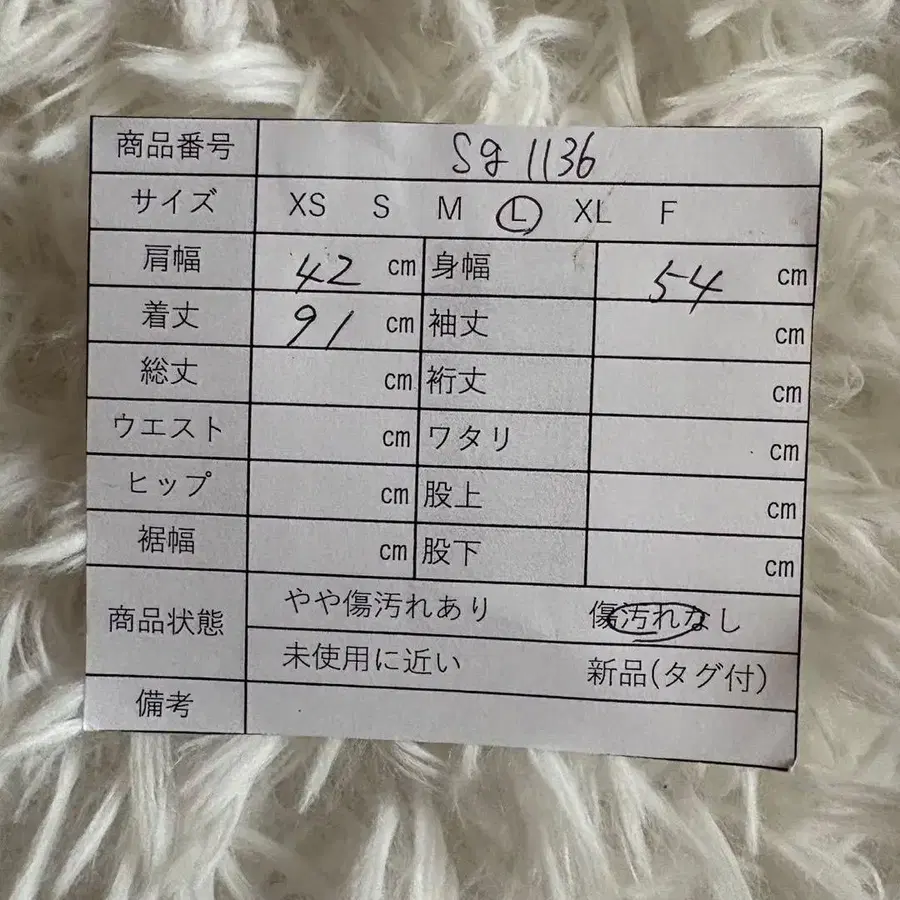 商品番号 sg 1136
サイズ XS S M L XL F
肩幅 42 cm 身幅 54 cm
着丈 91 cm 袖丈 cm
総丈 cm 裄丈 cm
ウエスト cm ワタリ cm
ヒップ cm 股上 cm
裾幅 cm 股下 cm
商品状態 やや傷汚れあり 傷汚れなし
未使用に近い 新品(タグ付)
備考